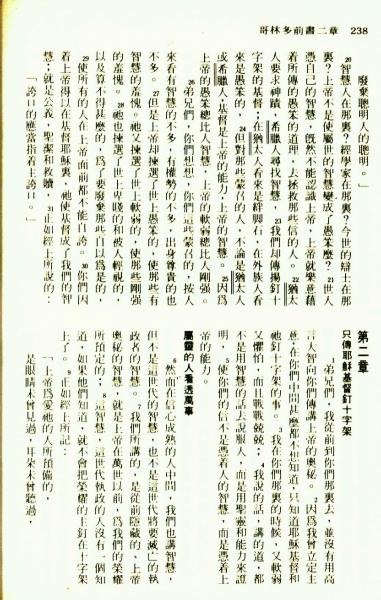 哥林多前書二章 238
廢棄聰明人的聰明。」
20智慧人在那裏？經學家在那裏？今世的辯士在那
裏？上帝不是使屬世的智慧變成了愚笨麼？21世人
憑自己的智慧，既然不能認識上帝，上帝就樂意藉
着所傳的愚笨的道理，去拯救那些信的人。22猶太
人要求神蹟，希臘人尋找智慧，23我們却傳揚釘十
字架的基督；在猶太人看來是絆脚石，在外族人看
來是愚笨的。24但對那些蒙召的人，不論是猶太人
或希臘人，基督是上帝的能力，上帝的智慧。25因爲
上帝的愚笨總比人智慧，上帝的軟弱總比人剛強。
26弟兄們，你們想想，你們這些蒙召的，按人
來看有智慧的不多，有權勢的不多，出身尊貴的也
不多。27但是上帝揀選了世上愚笨的，使那些有
智慧的羞愧。祂又揀選了世上軟弱的，使那些剛強
的羞愧。28祂也揀選了世上卑賤的和被人輕視的，
以及算不得甚麼的，爲了要廢棄那些自以爲是的，
29使所有的人在上帝面前都不能自誇。30你們因
着上帝得以在基督耶穌裏，祂使基督成了我們的智
慧；就是公義，聖潔和救贖，31正如經上所說的：
「誇口的應當指着主誇口。」
第二章
只傳耶穌基督釘十字架
1弟兄們，我從前到你們那裏去，並沒有用高
言大智向你們傳講上帝的奧秘。2因爲我曾立定主
意，在你們中間甚麼都不想知道，只知道耶穌基督和
祂釘十字架的事。3我在你們那裏的時候，又軟弱
又懼怕，而且戰戰兢兢；4我說的話，講的道，都
不是用智慧的話去說服人，而是用聖靈和能力來證
明，5使你們的信不是憑着人的智慧，而是憑着上
帝的能力。
屬靈的人看透萬事
6然而在信心成熟的人中間，我們也講智慧，
但不是這世代的智慧，也不是這世代將要滅亡的執
政者的智慧。7我們所講的，是從前隱藏的、上帝
奧秘的智慧，就是上帝在萬世以前，爲我們的榮耀
所預定的；8這智慧，這世代執政的人沒有一個知
道，如果他們知道，就不會把榮耀的主釘在十字架
上了。9正如經上所記：
「上帝爲愛祂的人所預備的，
是眼睛未曾見過，耳朵未曾聽過，